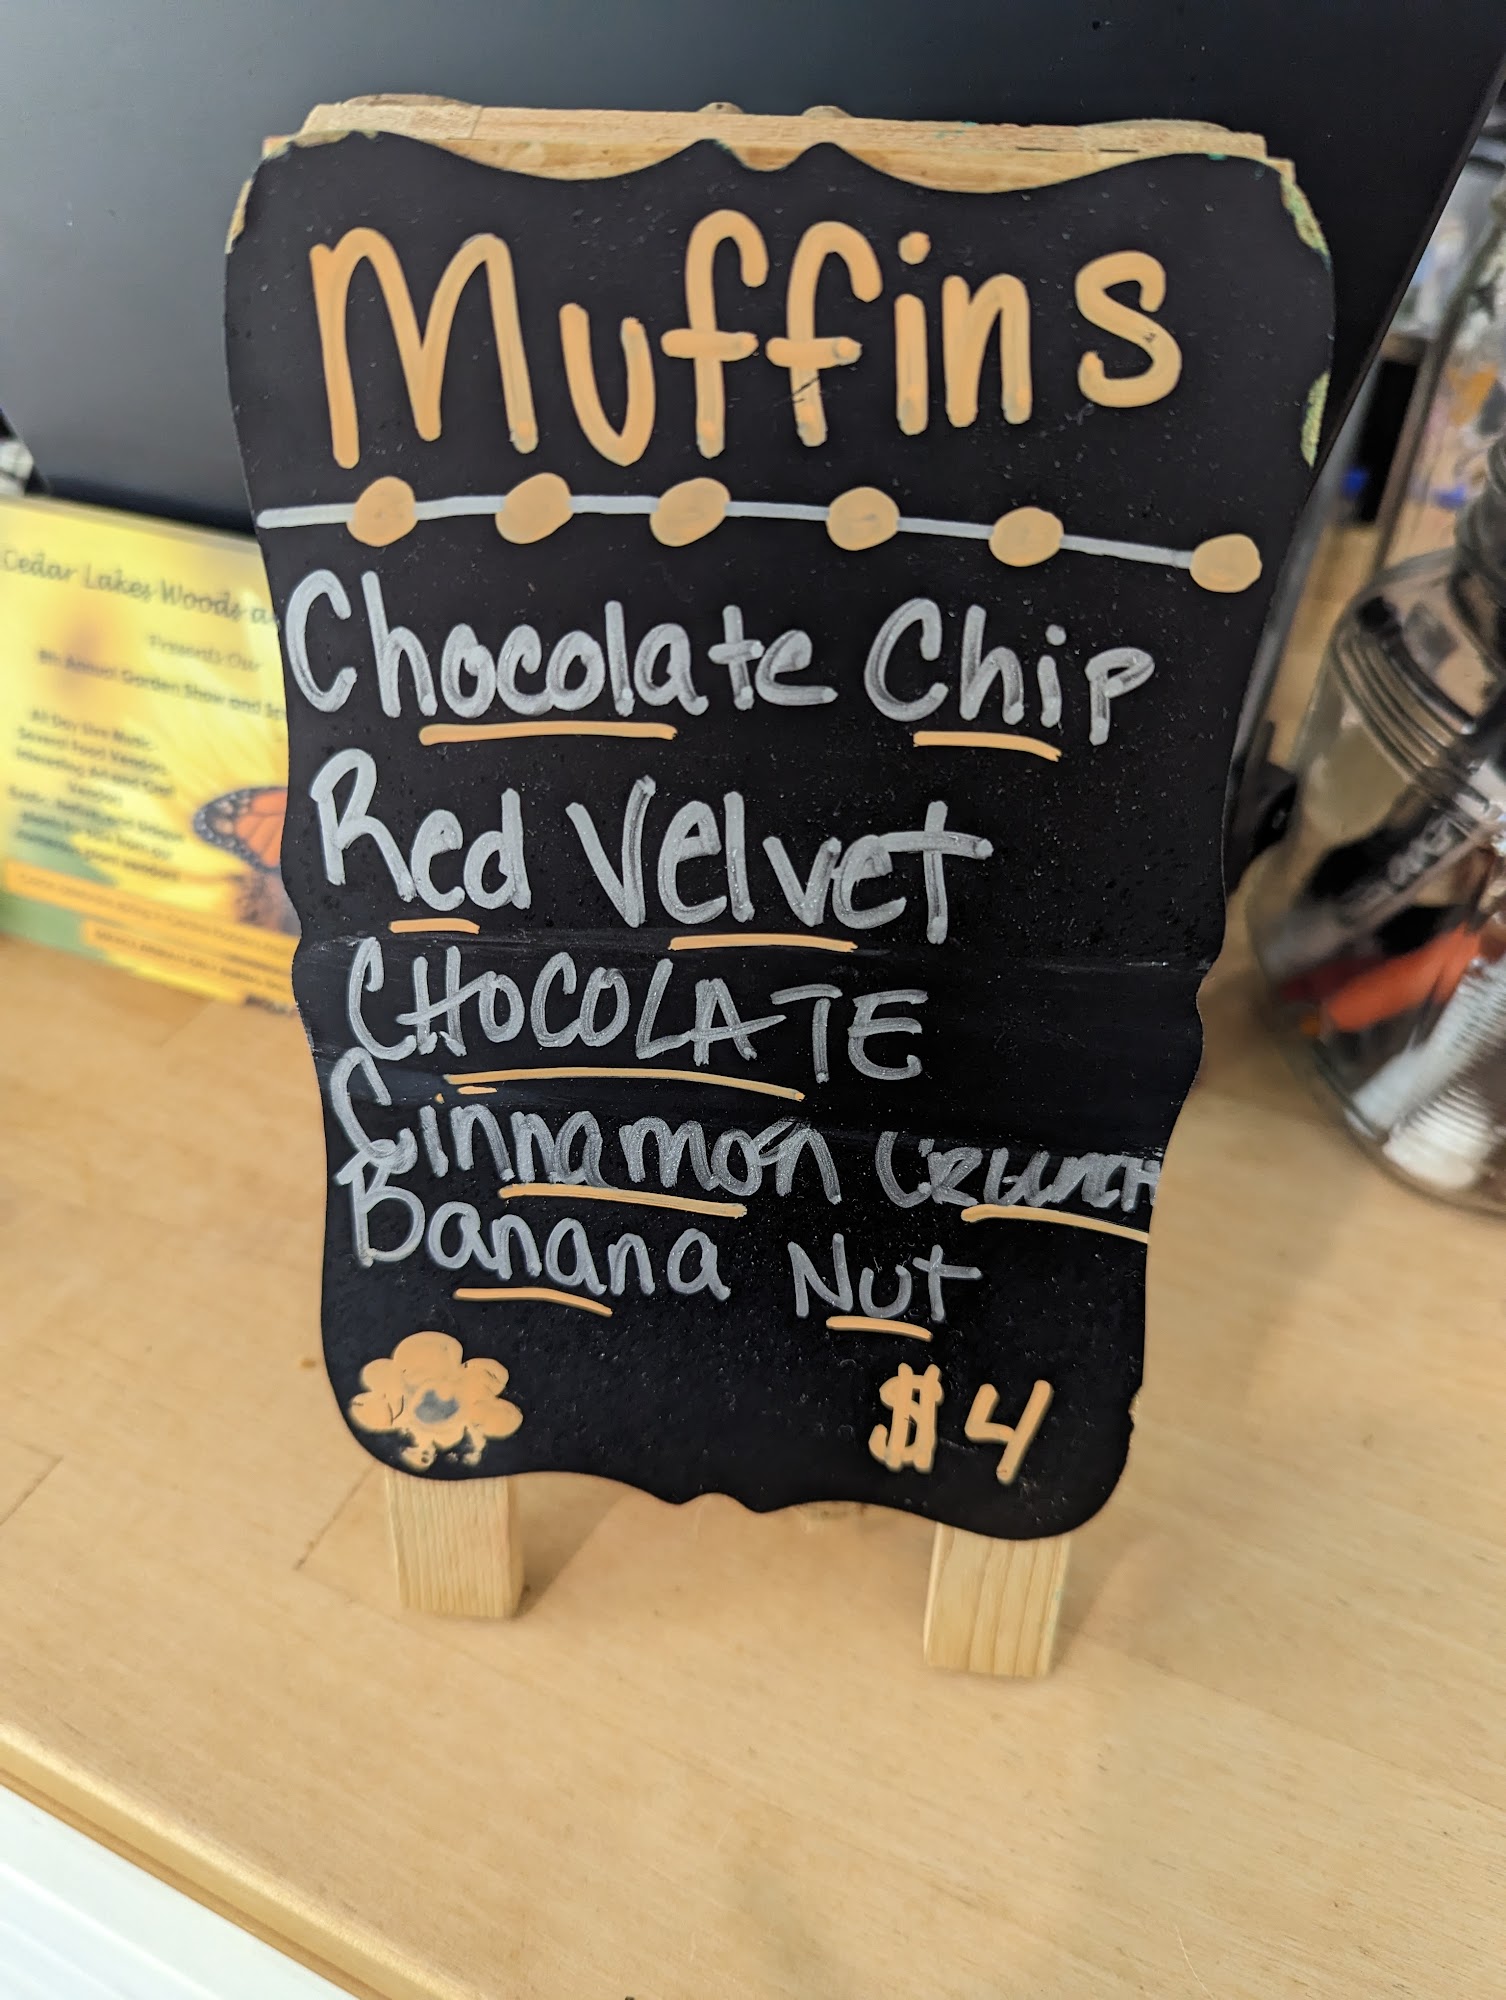 Muffins
Chocolate Chip
Red Velvet
CHOCOLATE
Cinnamon CRUNCH
Banana Nut
$4
Cedar Lakes Woods a
Presents Our
8th Annual Garden Show and
All Day Live Music,
Several Food Vendors,